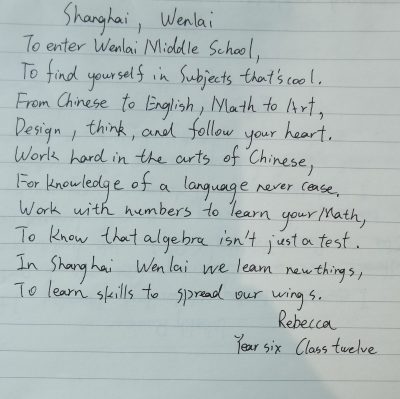 Shanghai, Wenlai
To enter Wenlai Middle School,
To find yourself in Subjects that's cool.
From Chinese to English, Math to Art,
Design, think, and follow your heart.
Work hard in the arts of Chinese,
For knowledge of a language never cease.
Work with numbers to learn your Math,
To know that algebra isn't just a test.
In Shanghai Wenlai we learn new things,
To learn skills to spread our wings.
Rebecca
Year six Class twelve